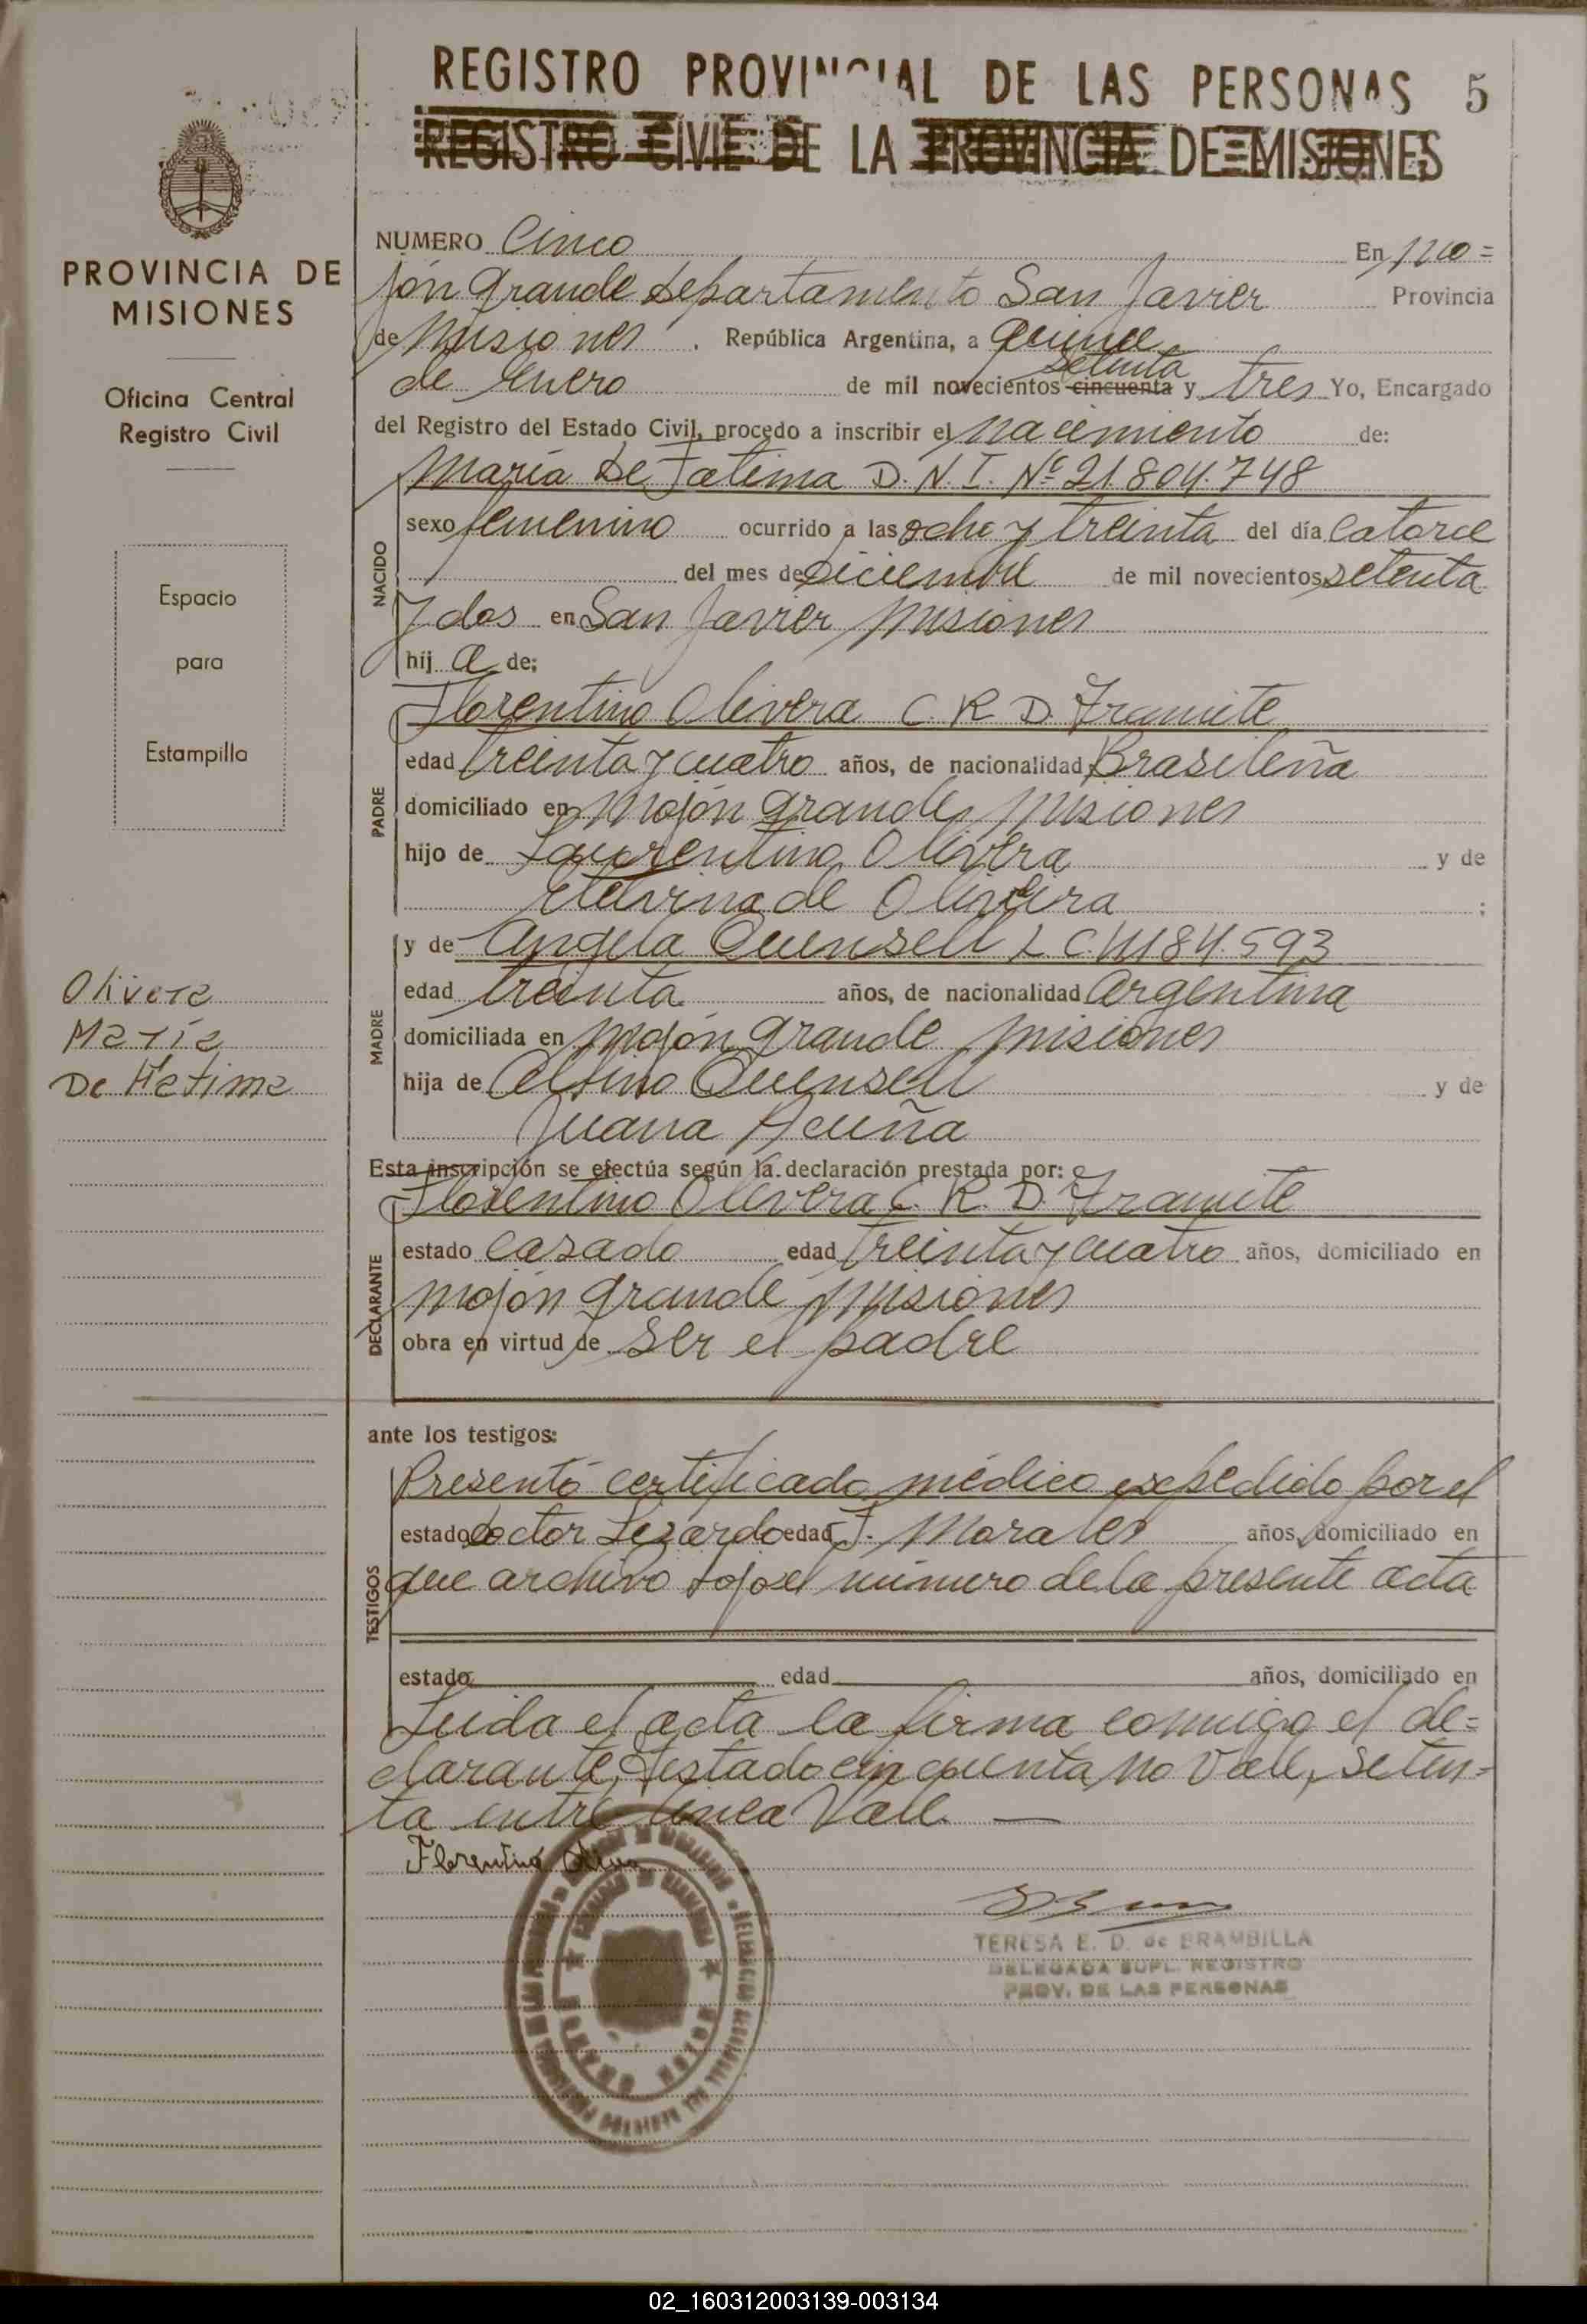 REGISTRO PROVINCIAL DE LAS PERSONAS 5
REGISTRO CIVIL DE LA PROVINCIA DE MISIONES
PROVINCIA DE
MISIONES
Oficina Central
Registro Civil
Espacio
para
Estampilla
Olivera
María
De Fátima
NUMERO Cinco En Mo=
jón Grande departamento San Javier Provincia
de Misiones . República Argentina, a quince
setenta
de Enero de mil novecientos cincuenta y tres Yo, Encargado
del Registro del Estado Civil, procedo a inscribir el nacimiento de:
María de Fatima D. N. I. Nº 21.804.748
NACIDO
sexo femenino ocurrido a las ocho y treinta del día catorce
del mes de diciembre de mil novecientos setenta
y dos en San Javier Misiones
hij a de:
Florentino Olivera C. R. D. Tramite
PADRE
edad treinta y cuatro años, de nacionalidad Brasileña
domiciliado en Mojón grande Misiones
hijo de Laurentino Olivera y de
Etelvina de Oliveira ;
MADRE
y de Angela Quensell L C. 4184.593
edad treinta años, de nacionalidad Argentina
domiciliada en Mojón grande Misiones
hija de Celsino Quensell y de
Juana Acuña
Esta inscripción se efectúa según la declaración prestada por:
Florentino Olivera C. R. D. Tramite
DECLARANTE
estado casado edad treinta y cuatro años, domiciliado en
Mojón grande Misiones
obra en virtud de ser el padre
ante los testigos:
TESTIGOS
Presentó certificado médico expedido por el
estado doctor Lizardo edad J. Morales años, domiciliado en
que archivo bajo el número de la presente acta
estado edad años, domiciliado en
Leida el acta la firma conmigo el de=
clarante, testado cincuenta no vale, seten=
ta entre linea Vale. —
Florentino
TERESA E. D. de BRAMBILLA
DELEGADA SUPL. REGISTRO
PROV. DE LAS PERSONAS
02_160312003139-003134